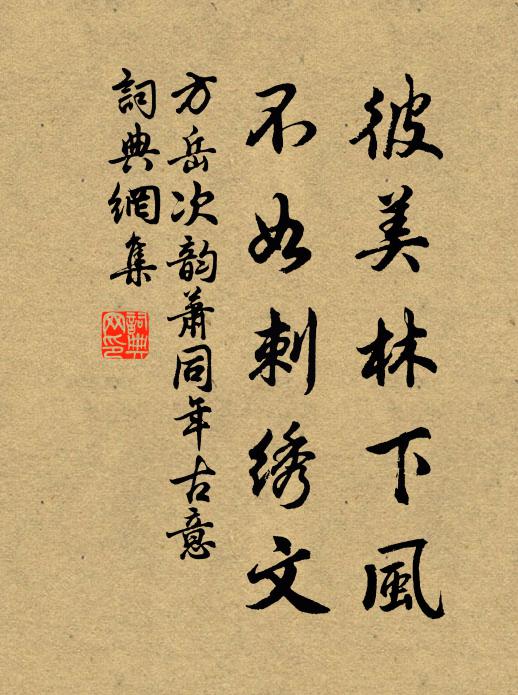 彼美林下風
不如刺绣文
方岳次韵蕭同年古意
詞典網集
詞典
网印